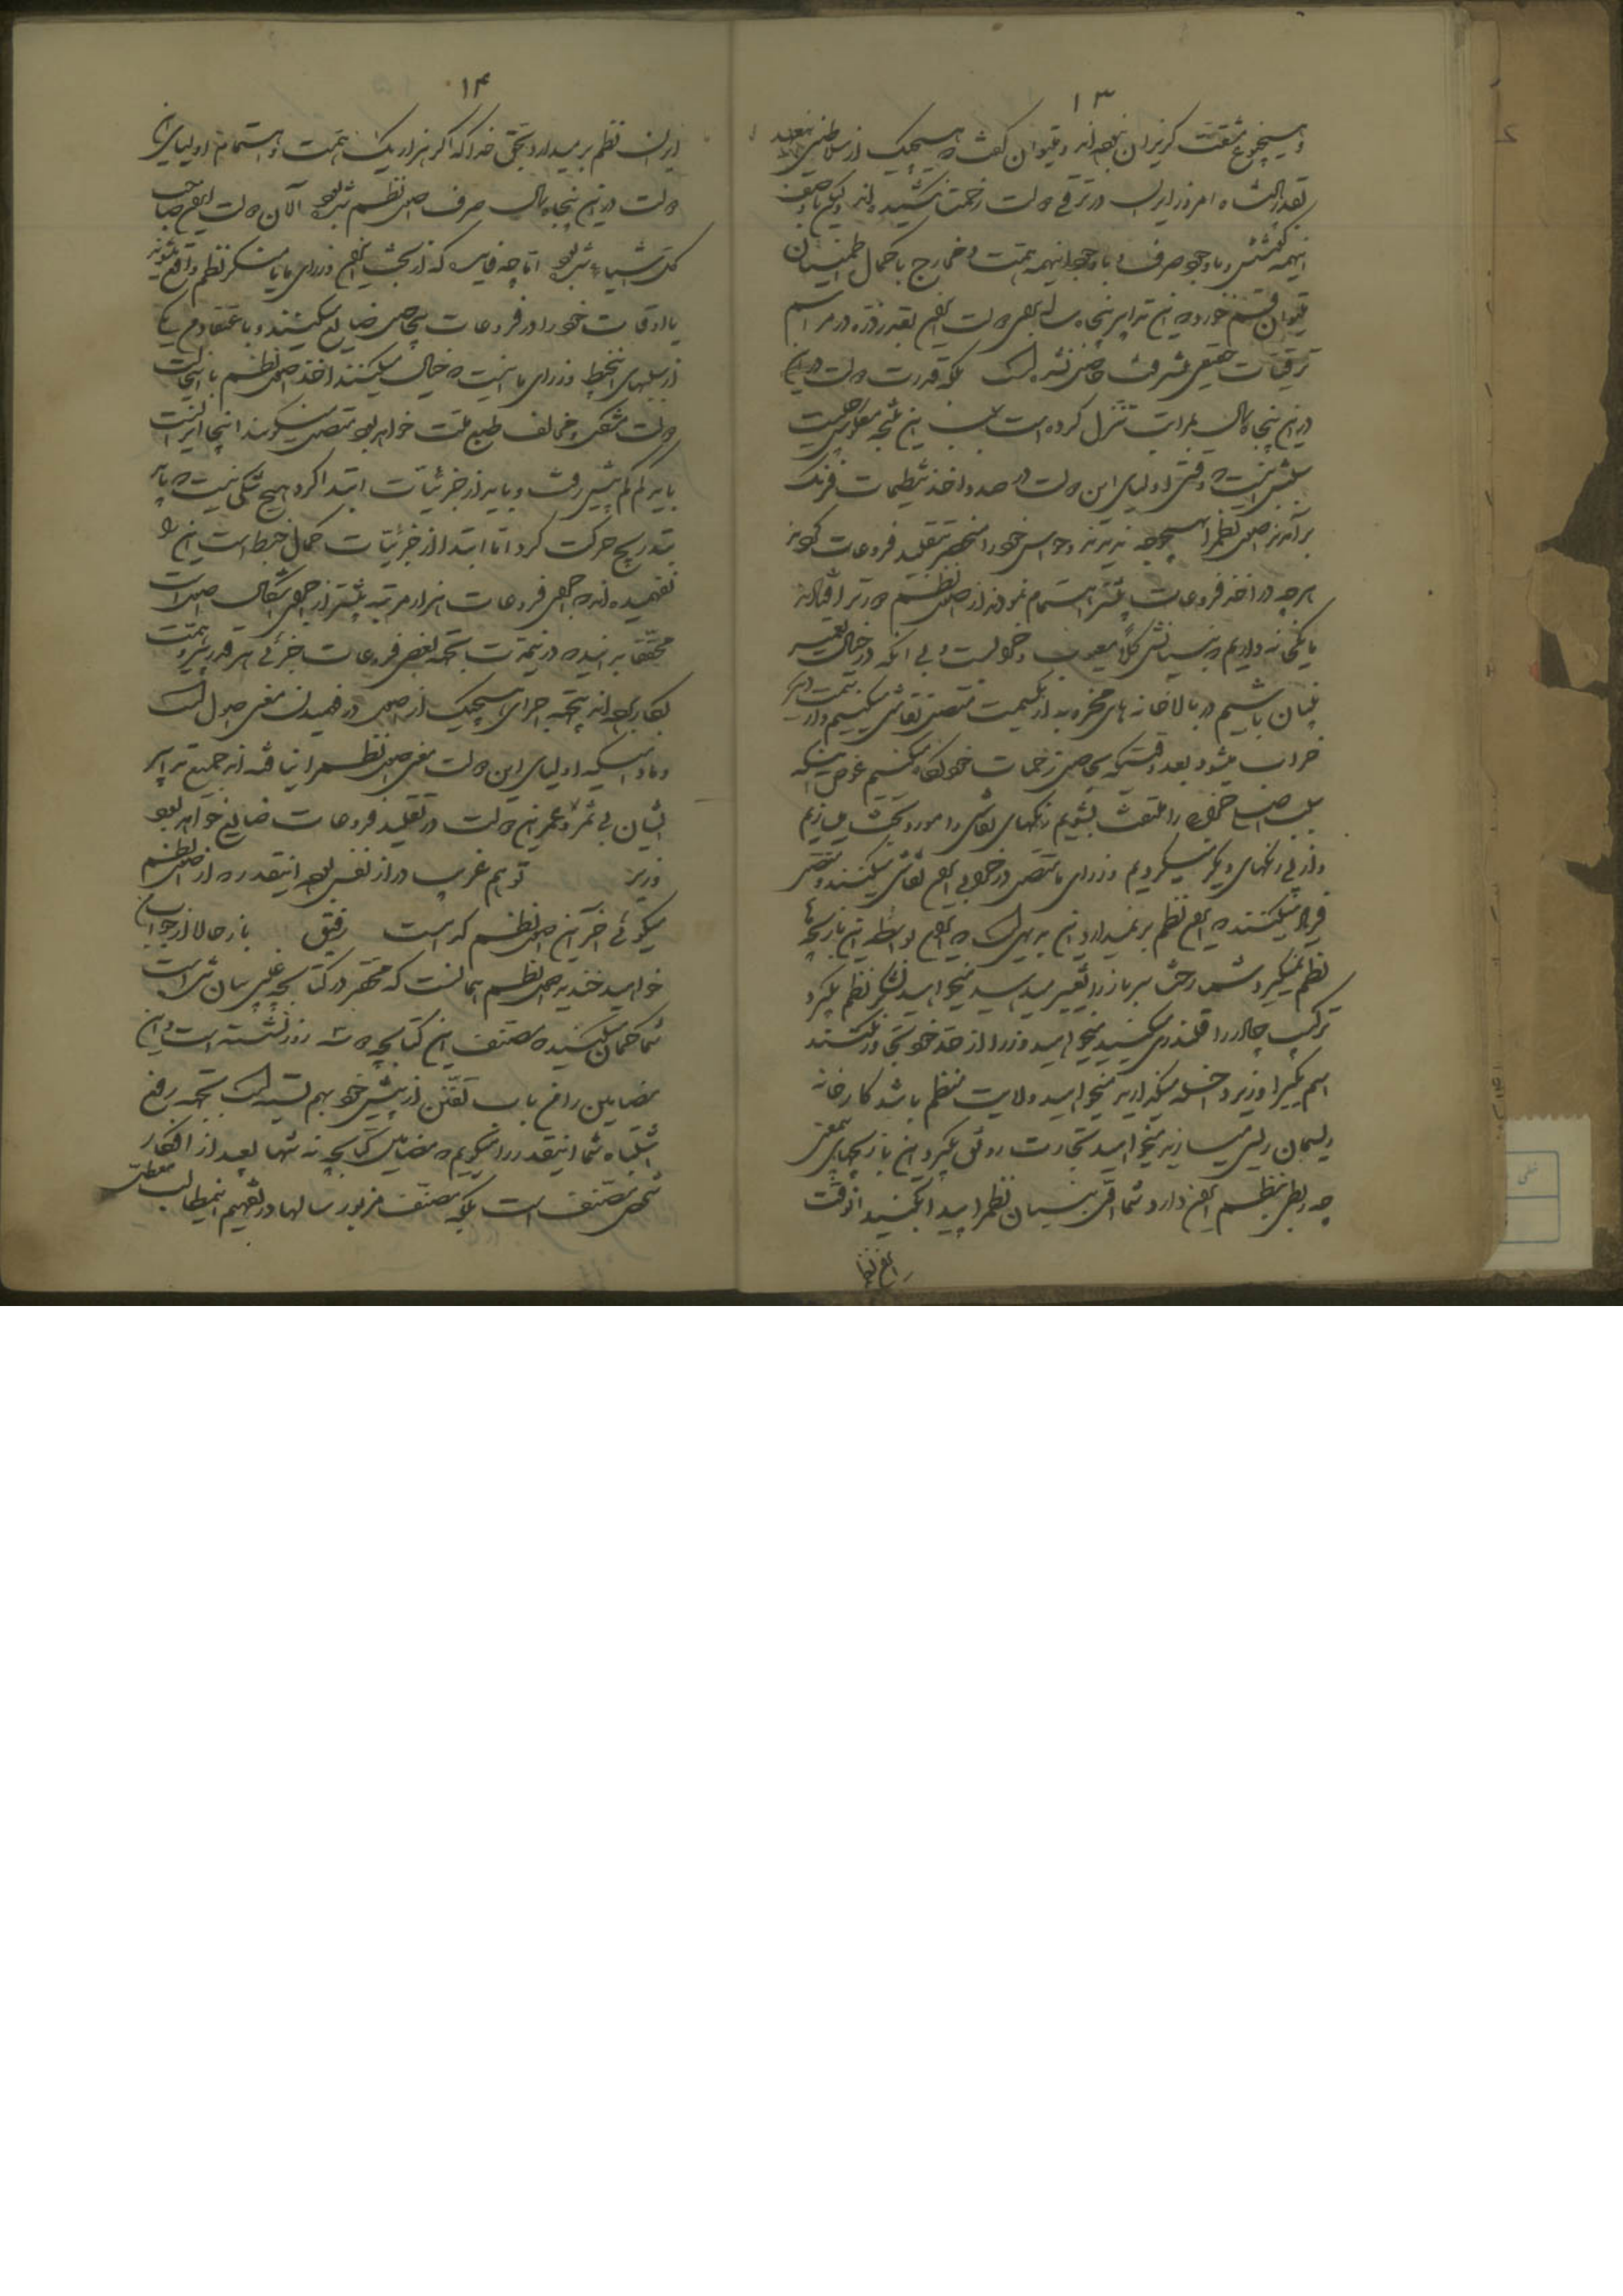 ۱۳
و بهیچ نوع مشقت گریزان نبوده‌اند و میتوان گفت که هیچیک از سلاطین
بقدر پادشاه امروز ایران در ترقی دولت زحمت نکشیده‌اند ولیکن با وصف
اینهمه کوشش و با وجود صرف و با وجود اینهمه همت و مخارج با کمال اطمینان
میتوان قسم خورد که این تدابیر پنجاه ساله بقدر ذره در مراسم
ترقیات حقیقی پیشرفت حاصل نشده است بلکه قدرت دولت ایران
در این پنجاه سال بمراتب تنزل کرده است سبب این نتیجه معکوس چیست
سببش اینست که وقتی اولیای این دولت در صدد اخذ تنظیمات فرنگ
برآمدند اصول نظم را بهیچوجه ندیدند و حواس خود را منحصر بتقلید فروعات کردند
هر چه در اخذ فروعات بیشتر اهتمام نمودند از اصول نظم دورتر افتادند
ما یکخانه داریم که بنیانش کلاً معیوب و خرابست و بی آنکه در خیال تعمیر
بنیان باشیم در بالاخانه‌های مخروبه از یکسمت متصل نقاشی میکنیم و از سمت دیگر
خراب میشود بعد از وقتیکه بیحاصلی زحمات خود نگاه میکنیم عوض اینکه
سبب اصلی خرابی را ملتفت بشویم رنگهای نقاشی را مورد بحث میسازیم
و از پی رنگهای دیگر میگردیم وزرای ما متصل در خرابی این نقاشی میکنند و متصل
فریاد میکنند که ایران نظم بر نمیدارد این بدیهی است که ایران بواسطه این بازیچه‌ها
نظم نمیگیرد شما رخت سرباز را تغییر میدهید میخواهید لشکر نظم بگیرد
ترکیب چادر را قلمندری میکنید میخواهید وزرا از حد خود تجاوز نکنند
اسم یکی را وزیر داخله میگذارید میخواهید ولایت منظم باشد کارخانه
ریسمان ریسی میسازید میخواهید تجارت رونق بگیرد این بازیچهای بیمعنی
چه ربطی بنظم ایران دارد شما اول بنیان نظم را پیدا بکنید آنوقت
۱۴
ایران نظم بر میدارد بحق خدا که اگر هزار یک همت و اهتمام اولیای این
دولت در این پنجاه سال صرف اصول نظم شده بود الآن دولت ایران صاحب
کل آسیا شده بود اما چه فایده که از بخت ایران وزرای ما یا منکر نظم واقع میشوند
یا اوقات خود را در فروعات بیحاصل ضایع میکنند و باعتقاد من یکی
از سهوهای غلط وزرای ما اینست که خیال میکنند اخذ اصول نظم با این حالت
دولت مشکل و مخالف طبع ملت خواهد بود متصل میگویند اینجا ایرانست
باید کم کم پیش رفت و باید از جزئیات ابتدا کرد هیچ شکی نیست که باید
بتدریج حرکت کرد اما ابتدا از جزئیات کمال خبط است این را
نفهمیده‌اند که اجرای فروعات هزار مرتبه بیشتر از اجرای اصول اشکال است
محققا بدانید که در این مدت بجهة بعضی فروعات جزئی هر قدر همت
بکار برده‌اند بجهة اجرای هیچیک از اصول در فهمیدن معنی اصول است
و مادامیکه اولیای این دولت معنی اصول نظم را نیافته‌اند جمیع تدابیر
ایشان بی ثمر و عمر این دولت در تقلید فروعات ضایع خواهد بود
وزیر تو هم غریب دراز نفس بوده اینقدر که از اصول نظم
میگوئی آخر این اصول نظم کدام است رفیق باز حالا از جواب
خواهید خندید اصول نظم همانست که مختصر در کتابچه غیبی بیان شده است
شما گمان میکنید که مصنف این کتابچه ده روز نشسته است و این
مضامین را من باب تفنن از پیش خود بهم بسته است بجهة رفع
اشتباه شما اینقدر را میگویم که مضامین کتابچه نه تنها بعد از افکار
شخص مصنف است بلکه مصنف مزبور سالها در تفهیم این مطالب معطل
ایران نظم